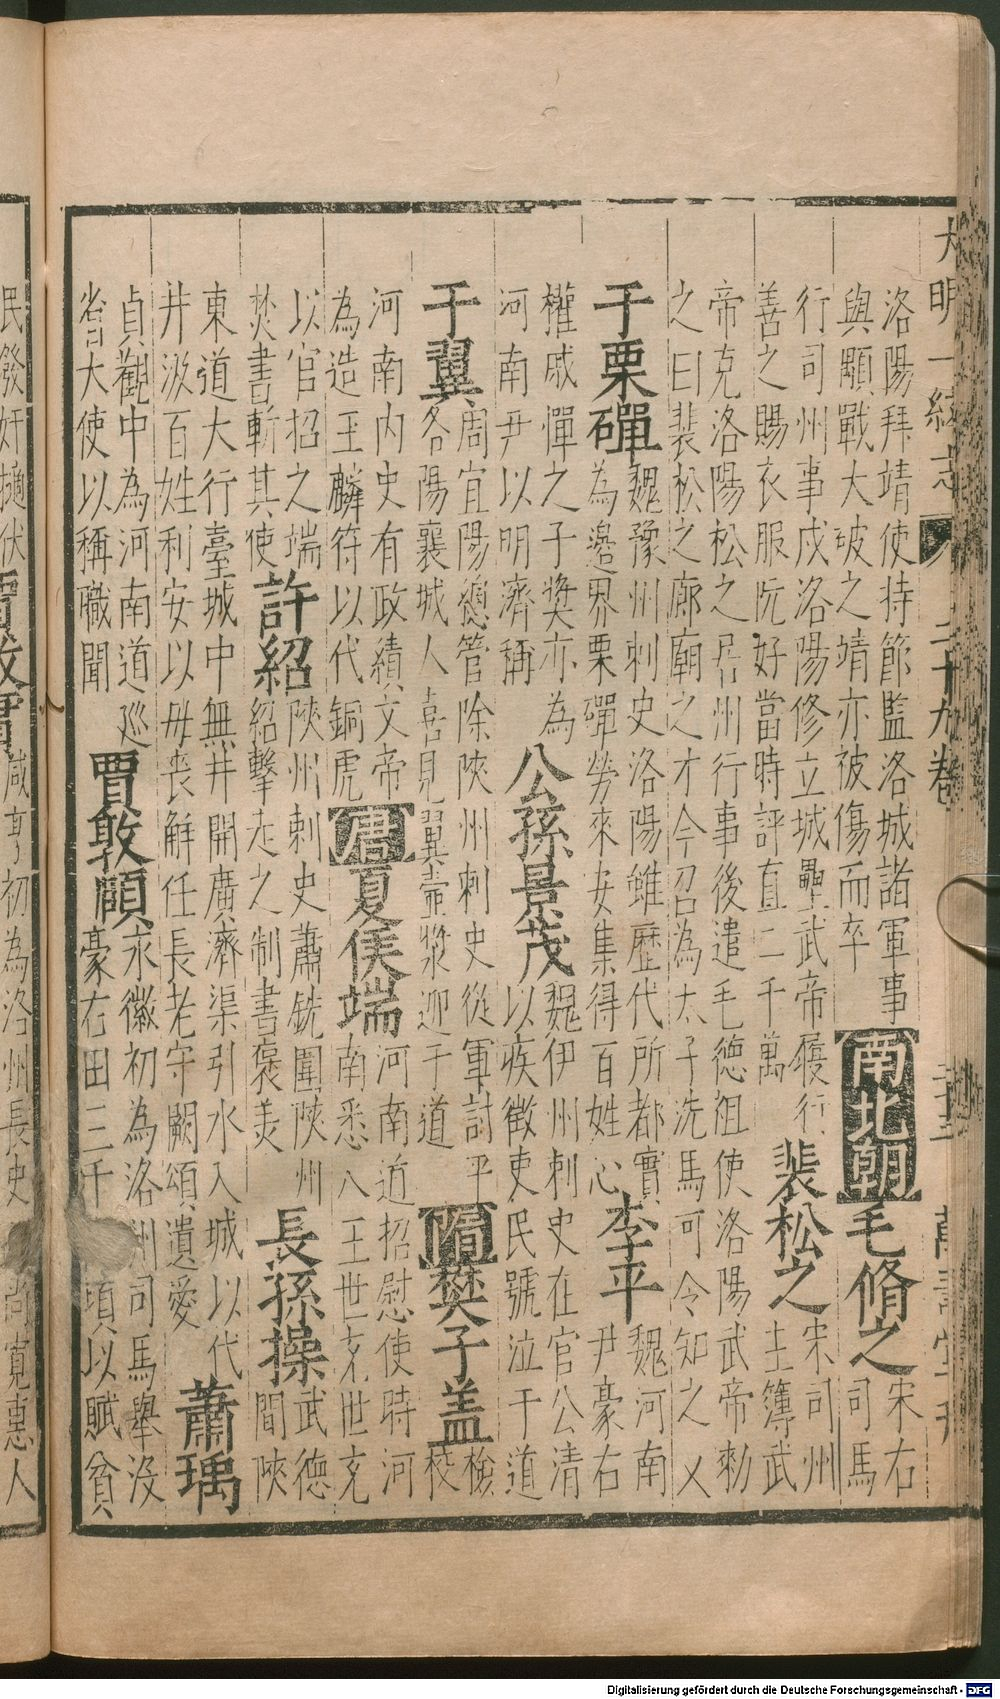 大明一統志 二十九卷 萬壽堂刊
洛陽拜靖使持節監洛城諸軍事
與顒戰大破之靖亦被傷而卒
南北朝
毛脩之
宋右
司馬
行司州事戍洛陽修立城壘武帝履行
善之賜衣服阮好當時評直二千萬
裴松之
宋司州
主簿武
帝克洛陽松之居州行事後遣毛德祖使洛陽武帝勑
之曰裴松之廊廟之才今召為太子洗馬可令知之乂
于栗磾
魏豫州刺史洛陽雖歷代所都實
為邊界栗磾勞來安集得百姓心
李平
魏河南
尹豪右
權戚憚之子奬亦為
河南尹以明濟稱
公孫景茂
魏伊州刺史在官公清
以疾徵吏民號泣于道
于翼
周宜陽總管除陝州刺史從軍討平
各陽襄城人喜見翼壷漿迎于道
隋
樊子盖
檢
校
河南内史有政績文帝
為造玉麟符以代銅虎
唐
夏侯端
河南道招慰使時河
南悉入王世充世充
以官招之端
焚書斬其使
許紹
陝州刺史蕭銑圍陝州
紹擊走之制書褒美
長孫操
武德
間陝
東道大行臺城中無井開廣濟渠引水入城以代
井汲百姓利安以毋喪解任長老守闕頌遺愛
蕭瑀
貞觀中為河南道廵
省大使以稱職聞
賈敦頤
永徽初為洛州司馬舉没
豪右田三千頃以賦貧
民發奸擿伏
賈敦實
咸亨初為洛州長史尚寬惠人
Digitalisierung gefördert durch die Deutsche Forschungsgemeinschaft - DFG